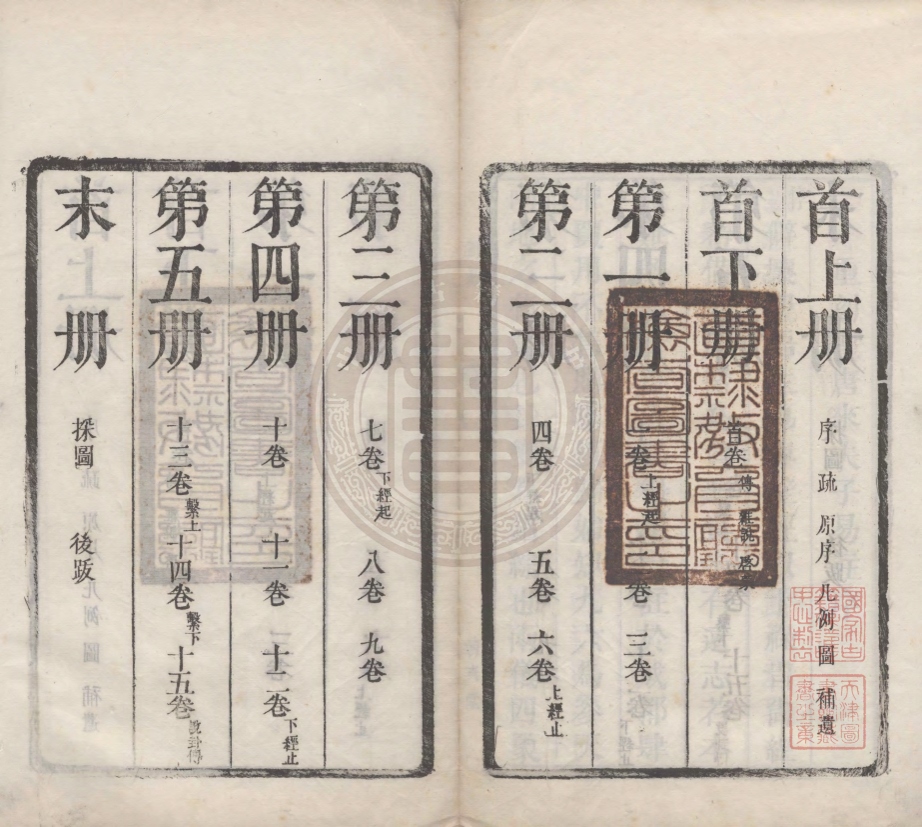 首上册 序圖 疏 原序 凡例 圖 補遺
首下册 首卷
第一册 一卷上經起 二卷 三卷
第二册 四卷 五卷 六卷上經止
第三册 七卷下經起 八卷 九卷
第四册 十卷 十一卷 十二卷下經止
第五册 十三卷繫上 十四卷繫下 十五卷說卦傳
末册 探圖 後跋